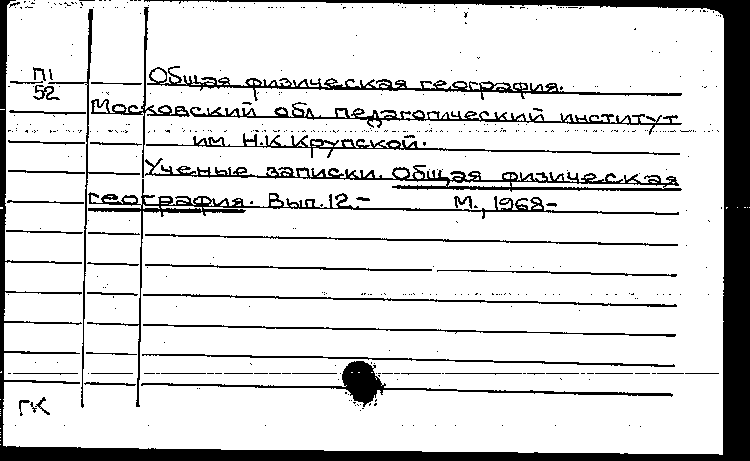 П1
52
Общая физическая география.
Московский обл. педагогический институт
им. Н.К.Крупской.
Ученые записки. Общая физическая
география. Вып.12.- М., 1968-
ГК